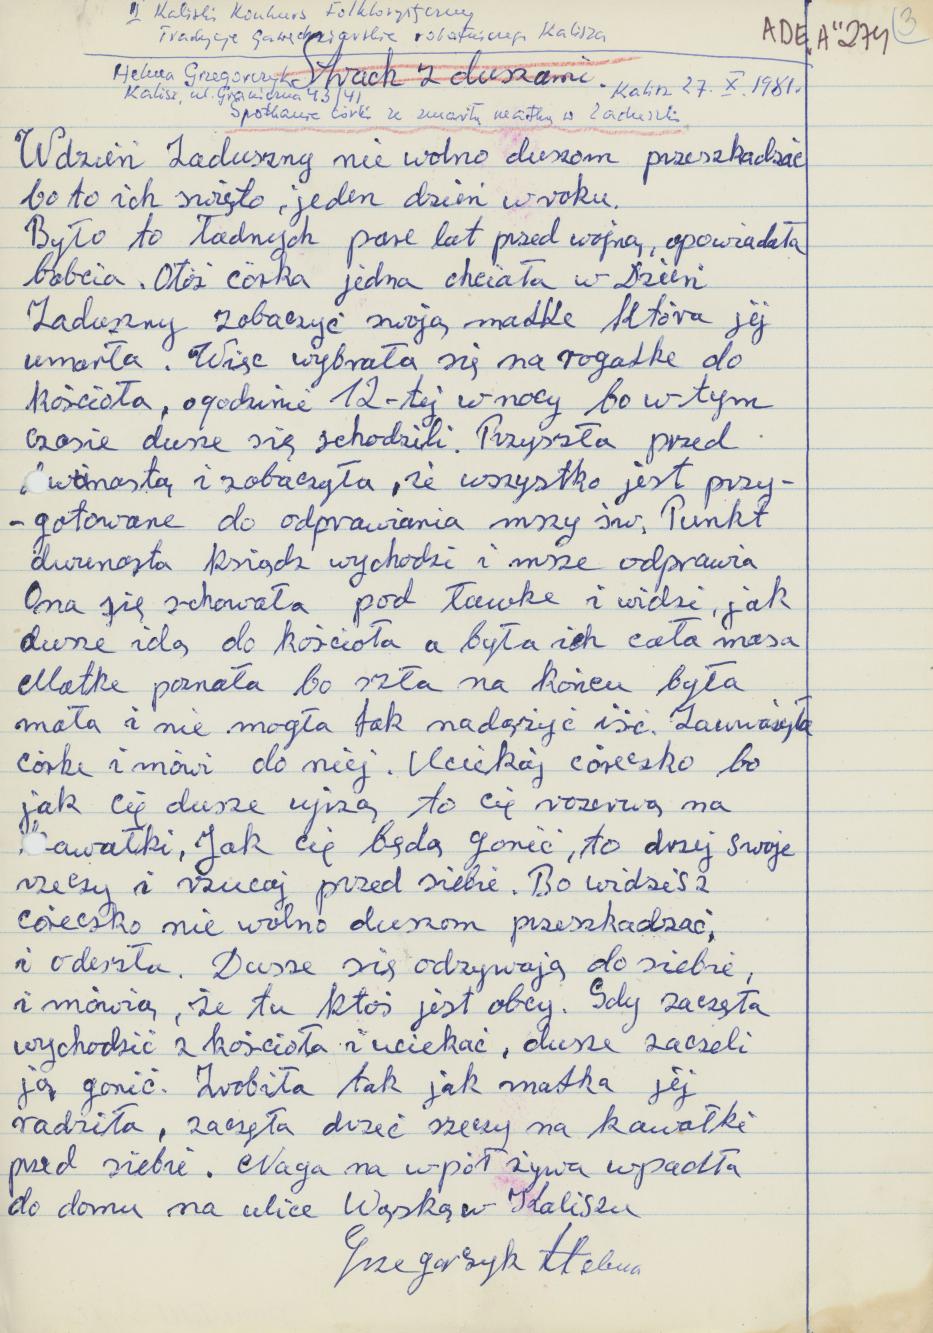 II Kaliski Konkurs Folklorystyczny
Tradycje gawędziarskie robotniczego Kalisza
ADE "A" 274 3
Helena Grzegorczyk Strach z duszami.
Kalisz, ul. Graniczna 43/41 Kalisz 27. X. 1981.
Spotkanie córki ze zmarłą matką w Zaduszki
Wdzień Zaduszny nie wolno duszom przeszkadzać
bo to ich święto, jeden dzień w roku.
Było to ładnych pare lat przed wojną, opowiadała
babcia. Otóż córka jedna chciała w Dzień
Zaduszny zobaczyć swoją matke która jej
umarła. Więc wybrała się na rogatke do
kościoła, ogodzinie 12-tej w nocy bo w tym
czasie dusze się schodzili. Przyszła przed
dwunastą i zobaczyła, że wszystko jest przy-
-gotowane do odprawiania mszy św. Punkt
dwunasta ksiądz wychodzi i msze odprawia
Ona się schowała pod ławke i widzi, jak
dusze idą do kościoła a była ich cała masa
Matke poznała bo szła na końcu była
mała i nie mogła tak nadążyć iść. Zauważyła
córke i mówi do niej. Uciekaj córeczko bo
jak cię dusze ujrzą to cię rozerwą na
kawałki, Jak cię będą gonić, to drzej swoje
rzeczy i rzucaj przed siebie. Bo widzisz
córeczko nie wolno duszom przeszkadzać,
i odeszła. Dusze się odzywają do siebie,
i mówią, że tu ktoś jest obcy. Gdy zaczęła
wychodzić z kościoła i uciekać, dusze zaczeli
ją gonić. Zrobiła tak jak matka jej
radziła, zaczęła drzeć rzeczy na kawałki
przed siebie. Naga na wpół żywa wpadła
do domu na ulice Wąską w Kaliszu
Grzegorczyk Helena